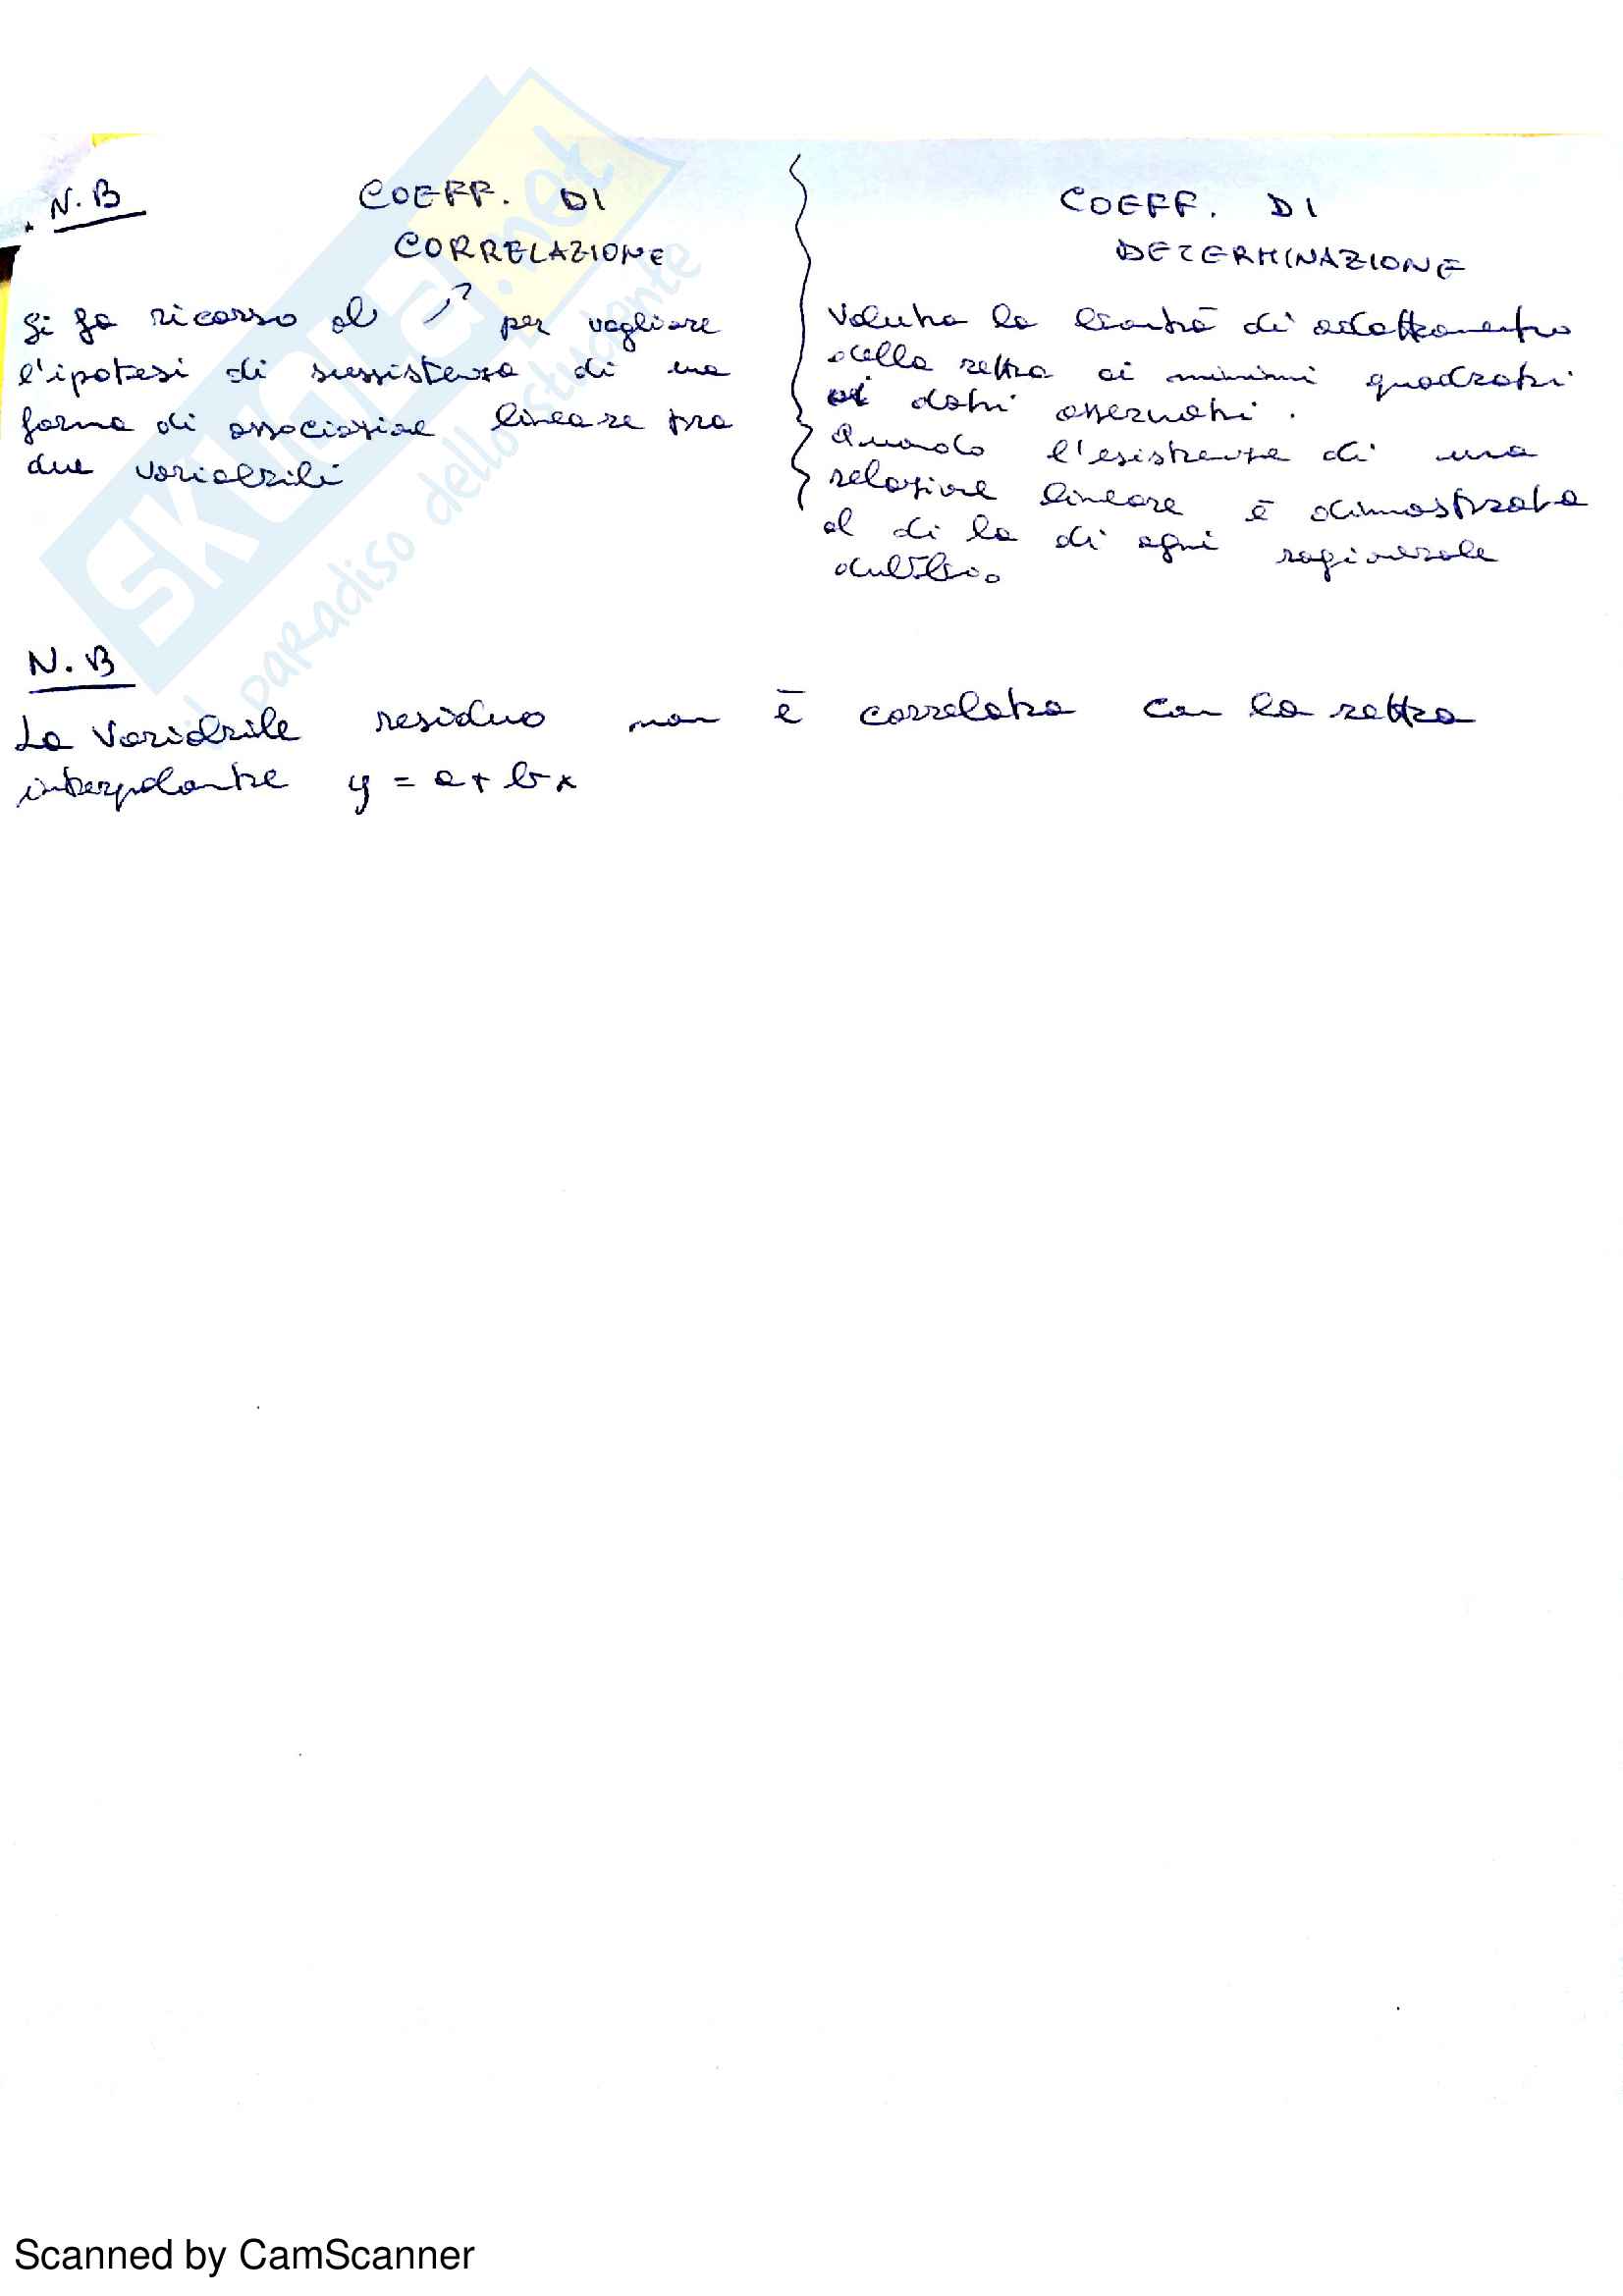 N.B
COEFF. DI
CORRELAZIONE
Si fa ricorso al r per vagliare
l'ipotesi di sussistenza di una
forma di associazione lineare tra
due variabili
COEFF. DI
DETERMINAZIONE
Valuta la bontà di adattamento
della retta ai minimi quadrati
ai dati osservati.
Quando l'esistenza di una
relazione lineare è dimostrata
al di la di ogni ragionevole
dubbio.
N.B
La variabile residuo non è correlata con la retta
interpolante y = a + bx
SKUOLA.net
il paradiso dello studente
Scanned by CamScanner